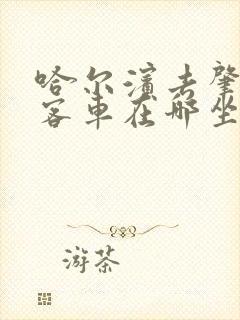 哈尔滨去肇
客车在哪坐
游茶